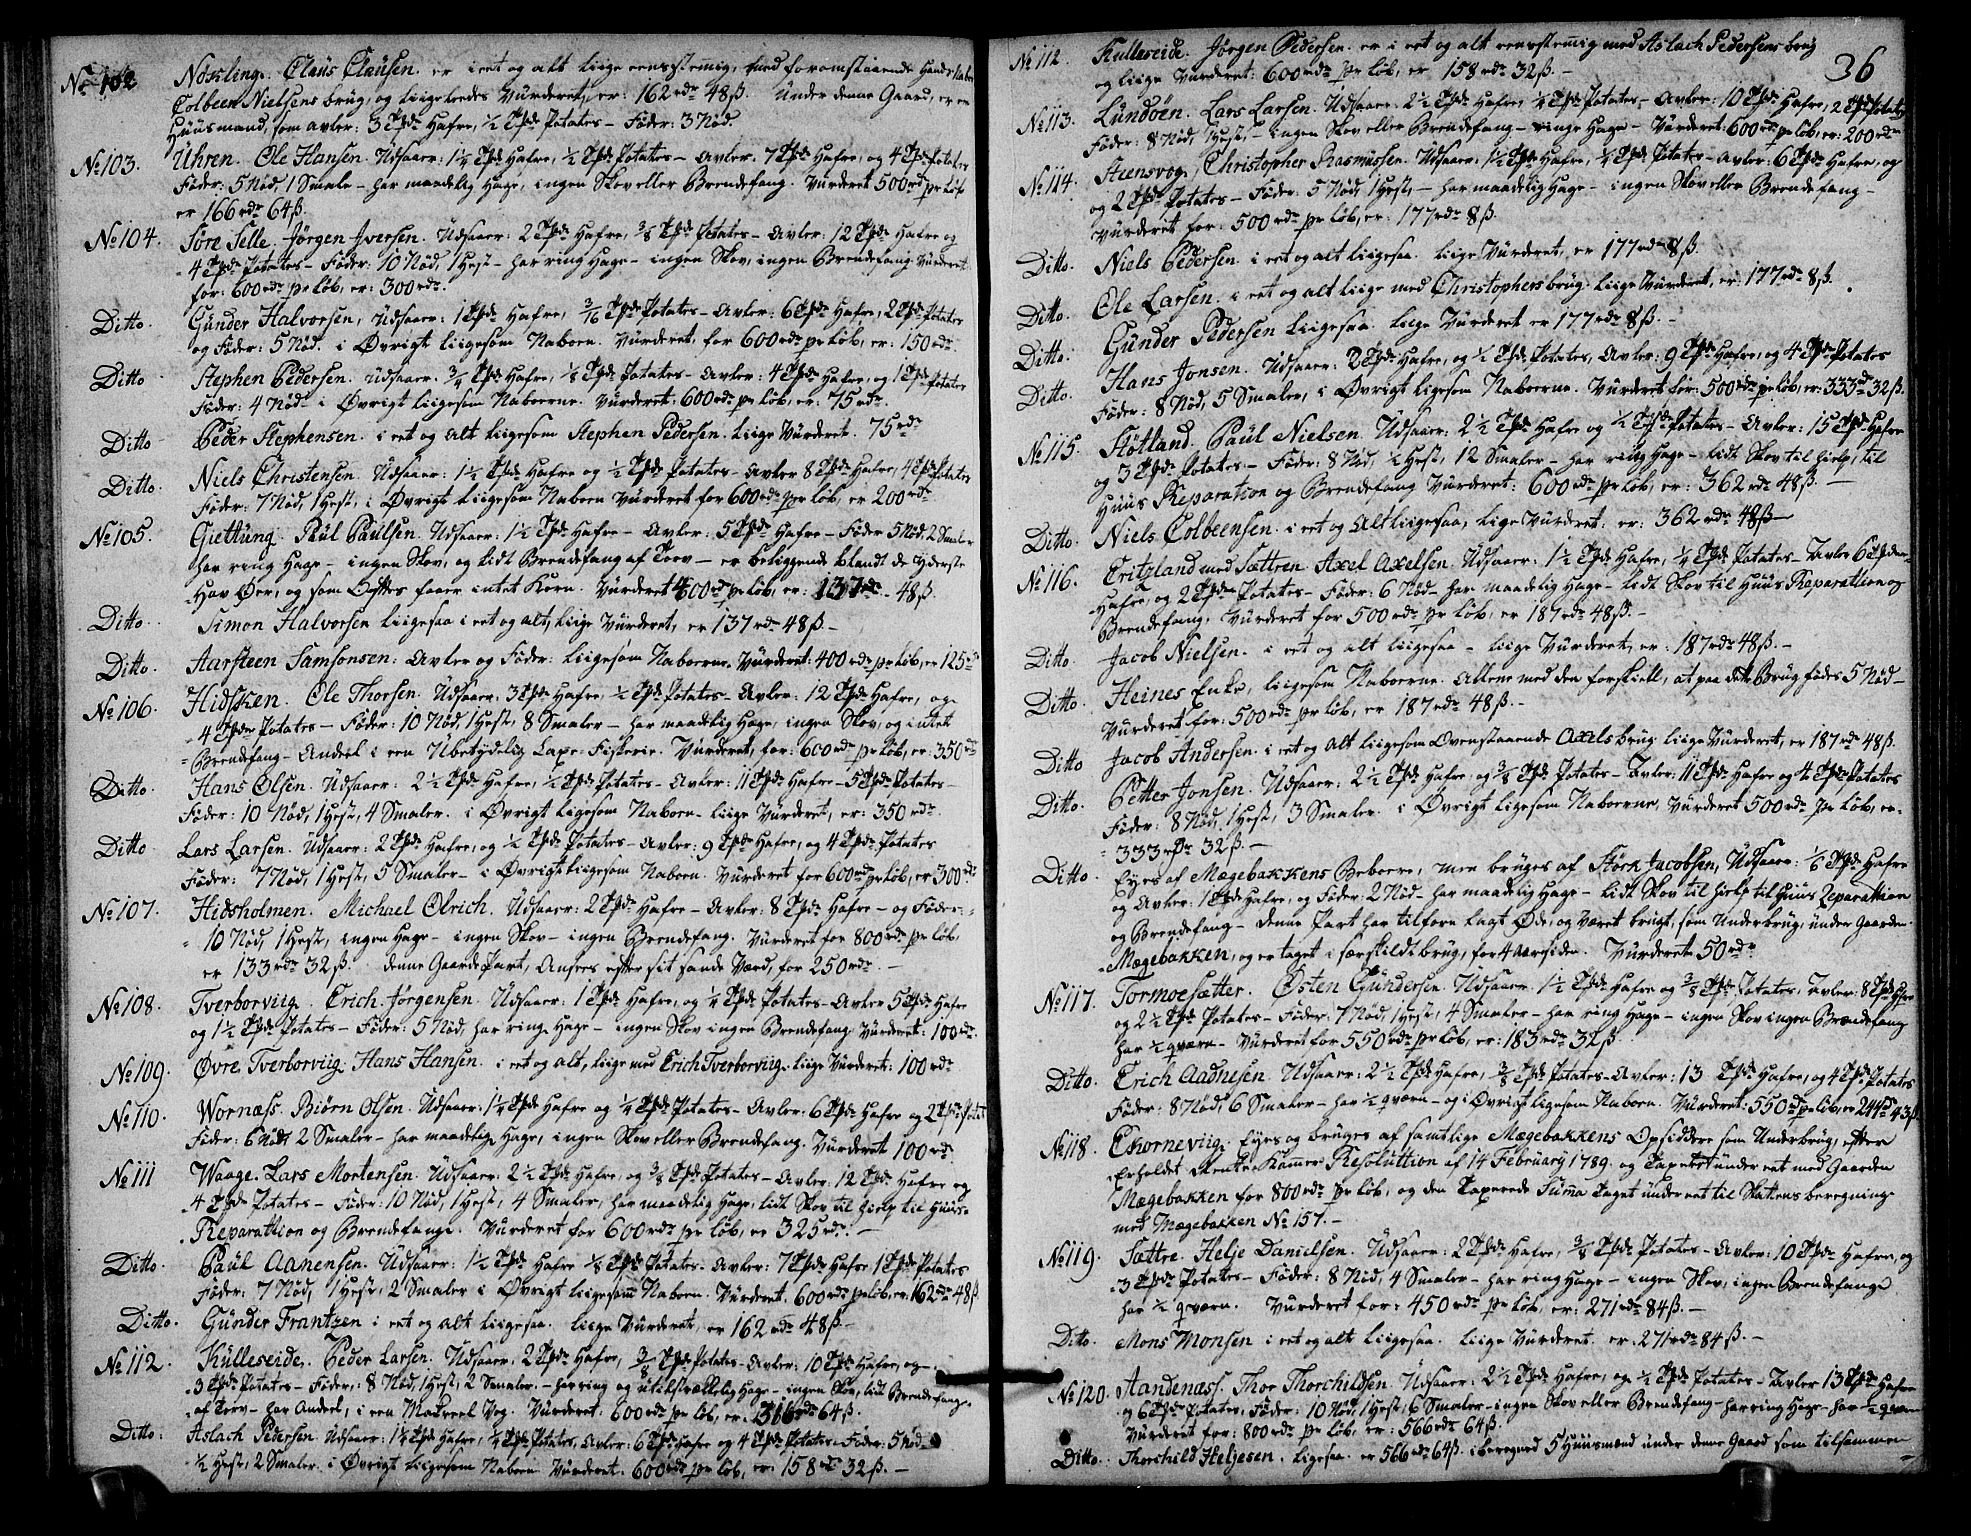 No 102 Nössling. Claus Clausen. er i eet og alt liige eenstemig, med foromstaaende
Colbeen Nielsens brug, og liigeleedes Vurderet, er: 162 rdr 48 ß. Under denne Gaard, er en
Huusmand, som avler: 3 Tpdr Hafre, ½ Tpdr Potates - Föder: 3 Nöd.
No 103. Uhren. Ole Hansen. Udsaaer: 1¼ Tpdr Hafre, ½ Tpdr Potates - Avler: 7 Tpdr Hafre, og 4 Tpdr Potates
Föder: 5 Nöd, 1 Smale - har maadelig Hage, ingen Skov eller Brendefang. Vurderet 500 rdr pr löb
er 166 rdr 64 ß.
No 104. Söre Selle. Jörgen Iversen. Udsaaer: 2 Tpdr Hafre, ⅜ Tpdr Potates - Avler: 12 Tpdr Hafre og
4 Tpdr Potates - Föder: 10 Nöd, 1 Hest - har ring Hage - ingen Skov, ingen Brendefang. Vurderet
for: 600 rdr pr löb, er: 300 rdr.
Ditto. Gunder Halvorsen, Udsaaer: 1 Tpdr Hafre, 3/16 Tpdr Potates - Avler: 6 Tpdr Hafre, 2 Tpdr Potates
og Föder: 5 Nöd. i Øvrigt liigesom Naboen. Vurderet, for 600 rdr pr löb, er: 150 rdr.
Ditto Stephen Pedersen. Udsaaer: ¾ Tpdr Hafre, ⅛ Tpdr Potates - Avler: 4 Tpdr Hafre, og 1 Tpdr Potates
Föder: 4 Nöd - i Øvrigt liigesom Naboerne. Vurderet: 600 rdr pr löb, er: 75 rdr.
Ditto Peder Stephensen. i eet og alt liigesom Stephen Pedersen. liige Vurderet. 75 rdr
Ditto. Niels Christensen. Udsaaer: 1½ Tpdr Hafre og ½ Tpdr Potates - Avler 8 Tpdr Hafre, 4 Tpdr Potates
Föder: 7 Nöd, 1 Hest, i Øvrigt liigesom Naboen Vurderet for 600 rdr pr löb, er 200 rdr
No 105. Giettung. Paul Paulsen. Udsaaer: 1½ Tpdr Hafre - Avler: 5 Tpdr Hafre - Föder 5 Nöd, 2 Smaler
har ring Hage - ingen Skov, og lidt Brendefang af Torv - er beliggende blandt de Yderste
Hav Øer, og som Oftes faaer intet Korn. Vurderet 400 rdr pr löb, er: 137 rdr - 48 ß.
Ditto. Simon Halvorsen liigesaa i eet og alt, liige Vurderet, er 137 rdr 48 ß -
Ditto. Aarsteen Samsonsen: Avler og Föder: liigesom Naboerne. Vurderet: 400 rdr pr löb, er 125 rdr
No 106. Hidsken. Ole Thorsen. Udsaaer: 3 Tpdr Hafre, ½ Tpdr Potates - Avler: 12 Tpdr Hafre, og
4 Tpdr Potates - Föder: 10 Nöd, 1 Hest, 8 Smaler - har maadelig Hage, ingen Skov, og intet
Brendefang - Andeel i een Ubetydelig Laxe-Fiskerie. Vurderet, for: 600 rdr pr löb, er: 350 rdr
Ditto. Hans Olsen. Udsaaer: 2½ Tpdr Hafre, ½ Tpdr Potates - Avler: 11 Tpdr Hafre - 5 Tpdr Potates -
Föder: 10 Nöd, 1 Hest, 4 Smaler. i Øvrigt ligesom Naboen - liige Vurderet, er: 350 rdr.
Ditto Lars Larsen. Udsaaer: 2 Tpdr Hafre, og ½ Tpdr Potates - Avler: 9 Tpdr Hafre, og 4 Tpdr Potates
Föder: 7 Nöd, 1 Hest, 5 Smaler - i Øvrigt liigesom Naboen. Vurderet for 600 rdr pr löb, er 300 rdr
No 107. Hidsholmen. Michael Olrich. Udsaaer: 2 Tpdr Hafre - Avler: 8 Tpdr Hafre - og Föder:
10 Nöd, 1 Hest, ingen Hage - ingen Skov - ingen Brendefang. Vurderet for 800 rdr pr löb,
er 133 rdr 32 ß. denne Gaards Part, Ansees efter sit sande Værd, for 250 rdr. -
No 108. Tverborviig. Erich Jörgensen. Udsaaer: 1 Tpdr Hafre, og ¼ Tpdr Potates - Avler 5 Tpdr Hafre
og 1½ Tpdr Potates - Föder: 5 Nöd, har ringe Hage - ingen Skov ingen Brendefang. Vurderet: 100 rdr.
No 109. Øvre Tverborviig. Hans Hansen. i eet og alt, liige med Erich Tverborviig. liige Vurderet: 100 rdr
No 110. Wornæss. Biörn Olsen. Udsaaer: 1¼ Tpdr Hafre og ¼ Tpdr Potates - Avler: 6 Tpdr Hafre og 2 Tpdr Potet
Föder: 6 Nöd, 2 Smaler - har maadelig Hage, ingen Skov eller Brendefang. Vurderet 100 rdr
No 111 Waage. Lars Mortensen. Udsaaer: 2½ Tpdr Hafre, og ⅜ Tpdr Potates - Avler: 12 Tpdr Hafre og
4 Tpdr Potates - Föder: 10 Nöd, 1 Hest, 4 Smaler, har maadelig Hage, lidt Skov til hielp til Huus-
Reparathion og Brendefang. Vurderet for 600 rdr pr löb, er: 325 rdr. -
Ditto. Paul Aanensen. Udsaaer: 1½ Tpdr Hafre ⅛ Tpdr Potates - Avler: 7 Tpdr Hafre 1 Tpdr Potates
Föder: 7 Nöd, 1 Hest, 2 Smaler i Øvrigt liigesom Naboen. Vurderet. 600 rdr pr löb, er: 162 rdr 48 ß
Ditto. Gunder Frantzen i eet og alt liigesaa. liige Vurderet, er 162 rdr 48 ß -
No 112. Kulleseide. Peder Larsen. Udsaaer: 2 Tpdr Hafre, ⅜ Tpdr Potates - Avler: 10 Tpdr Hafre, og
3 Tpdr Potates - Föder: 8 Nöd, 1 Hest, 2 Smaler. - har ring og utilstrækkelig Hage - ingen Skov, lidt Brendefang
af Torv - har Andeel, i een Makreel Vog. Vurderet: 600 rdr pr löb, er: 316 rdr 64 ß.
Ditto: Aslach Pedersen. Udsaaer: 1¼ Tpdr Hafre, ¼ Tpdr Potates, Avler: 6 Tpdr Hafre og 4 Tpdr Potates - Föder: 5 Nöd
½ Hest, 2 Smaler. i Øvrigt liigesom Naboen Vurderet. 600 rdr pr löb, er: 158 rdr 32 ß. -
36
No 112. Kulleseide. Jörgen Pedersen. er i eet og alt eenstemig med Aslach Pedersens brug
og liige Vurderet: 600 rdr pr löb, er 158 rdr 32 ß. -
No 113. Lundöen. Lars Larsen. Udsaaer: 2½ Tpdr Hafre, ¼ Tpdr Potates - Avler: 10 Tpdr Hafre, 2 Tpdr Potates
Föder: 8 Nöd, 1 Hest, - ingen Skov eller Brendefang - ringe Hage - Vurderet: 600 rdr pr löb, er: 200 rdr
No 114. Steensvog, Christopher Rasmussen. Udsaaer: 1½ Tpdr Hafre, ¼ Tpdr Potates - Avler: 6 Tpdr Hafre, og
og 2 Tpdr Potates - Föder: 5 Nöd, 1 Hest, - har maadelig Hage - ingen Skov eller Brendefang -
Vurderet for: 500 rdr pr löb, er: 177 rdr 8 ß.
Ditto. Niels Pedersen. i eet og alt liigesaa. liige Vurderet, er 177 rdr 8 ß.
Ditto. Ole Larsen. i eet og alt liige med Christophers brug. liige Vurderet, er: 177 rdr 8 ß.
Ditto. Gunder Pedersen liigesaa. liige Vurderet er 177 rdr 8 ß. -
Ditto. Hans Jonsen. Udsaaer: 2 Tpdr Hafre, og ½ Tpdr Potates, Avler: 9 Tpdr Hafre, og 4 Tpdr Potates
Föder: 8 Nöd, 5 Smaler, i Øvrigt ligesom Naboerne. Vurderet for: 500 rdr pr löb, er: 333 rdr 32 ß.
No 115. Stötland. Paul Nielsen. Udsaaer: 2½ Tpdr Hafre og ½ Tpdr Potates - Avler: 15 Tpdr Hafre
og 3 Tpdr Potates - Föder: 8 Nöd, ½ Hest, 12 Smaler - har ring Hage - lidt Skov til hielp, til
Huus Reparation og Brendefang Vurderet: 600 rdr pr löb, er: 362 rdr 48 ß. -
Ditto. Niels Colbeensen. i eet og Alt liigesaa, lige Vurderet: er: 362 rdr 48 ß -
No 116. Critzland med Sættren. Axel Axelsen. Udsaaer: 1½ Tpdr Hafre, ¼ Tpdr Potates - Avler 6 Tpdr
Hafre, og 2 Tpdr Potates - Föder: 6 Nöd - har maadelig Hage - lidt Skov til Huus Reparathion og
Brendefang. Vurderet for 500 rdr pr löb, er 187 rdr 48 ß. -
Ditto. Jacob Nielsen. i eet og alt liigesaa - liige Vurderet, er: 187 rdr 48 ß. -
Ditto. Heines Enke, liigesom Naboerne. Allene med den forskiell, at paa dette Brug födes 5 Nöd -
Vurderet for: 500 rdr pr löb, er 187 rdr 48 ß. -
Ditto Jacob Andersen. i eet og Alt liigesom Ovenstaaende Axels brug. liige Vurderet, er 187 rdr 48 ß.
Ditto. Petter Jonsen. Udsaaer: 2½ Tpdr Hafre, og ⅜ Tpdr Potates - Avler: 11 Tpdr Hafre og 4 Tpdr Potates
Föder: 8 Nöd, 1 Hest, 3 Smaler. i Øvrigt ligesom Naboerne, Vurderet 500 rdr pr löb, er
333 rdr 32 ß. -
Ditto. Eyes af Mægebakkens Beboere, men bruges af Störk Jacobsen, Udsaaer: ⅙ Tpdr Hafre
og Avler: 1 Tpdr Hafre, og Föder: 2 Nöd - har maadelig Hage - lidt Skov til hielp til Huus Reparathion
og Brendefang - denne Part har tilforn lagt Øde, og været brugt, som Underbrug, under Gaarden
Mægebakken, og er taget i særskildt brug, for 4 aar siden. Vurderet 50 rdr
No 117. Tormoesætter. Østen Gundersen. Udsaaer: 1½ Tpdr Hafre og ⅜ Tpdr Potates, Avler: 8 Tpdr Hafre
og 2½ Tpdr Potates - Föder: 7 Nöd, 1 Hest, 4 Smaler - har ring Hage - ingen Skov ingen Brændefang
har ½ qværn - Vurderet for 550 rdr pr löb, er: 183 rdr 32 ß
Ditto. Erich Aadnesen. Udsaaer: 2½ Tpdr Hafre, ⅜ Tpdr Potates - Avler: 13 Tpdr Hafre, og 4 Tpdr Potates
Föder: 8 Nöd, 6 Smaler - har ½ qværn - og i Øvrigt ligesom Naboen. Vurderet: 550 rdr pr löb, er 244 rdr 43 ß
No 118. Thorneviig. Eyes og bruges af samtlige Mægebakkens Opsiddere som Underbrug, efter
Erholdet Rente Kammer Resoluttion af 14 February 1789. og Taxeret under eet med Gaarden
Mægebakken for 800 rdr pr löb, og den Taxerede Suma Taget under eet til Skattens beregning
med Mægebakken No 157. -
No 119. Sættre. Helje Danielsen. Udsaaer: 2 Tpdr Hafre, ⅜ Tpdr Potates - Avler: 10 Tpdr Hafren, og
3 Tpdr Potates - Föder: 8 Nöd, 4 Smaler - har ring Hage - ingen Skov, ingen Brendefang
har ½ qværn. Vurderet for: 450 rdr pr löb, er: 271 rdr 84 ß. -
Ditto. Mons Monsen i eet og alt liigesaa. liige Vurderet. er: 271 rdr 84 ß. -
No 120. Aandenæss. Thor Thorchildsen. Udsaaer: 2½ Tpdr Hafre, og ½ Tpdr Potates - Avler 13 Tpdr Hafre
og 6 Tpdr Potates, Föder: 10 Nöd, 1 Hest, 6 Smaler - ingen Skov eller Brendefang - har ring Hage - har ½ qværn
Vurderet for: 800 rdr pr löb, er: 566 rdr 64 ß.
Ditto. Thorchild Heljesen. ligesaa. er 566 rdr 64 ß. iberegned 5 Huusmænd under denne Gaard som tilsammen